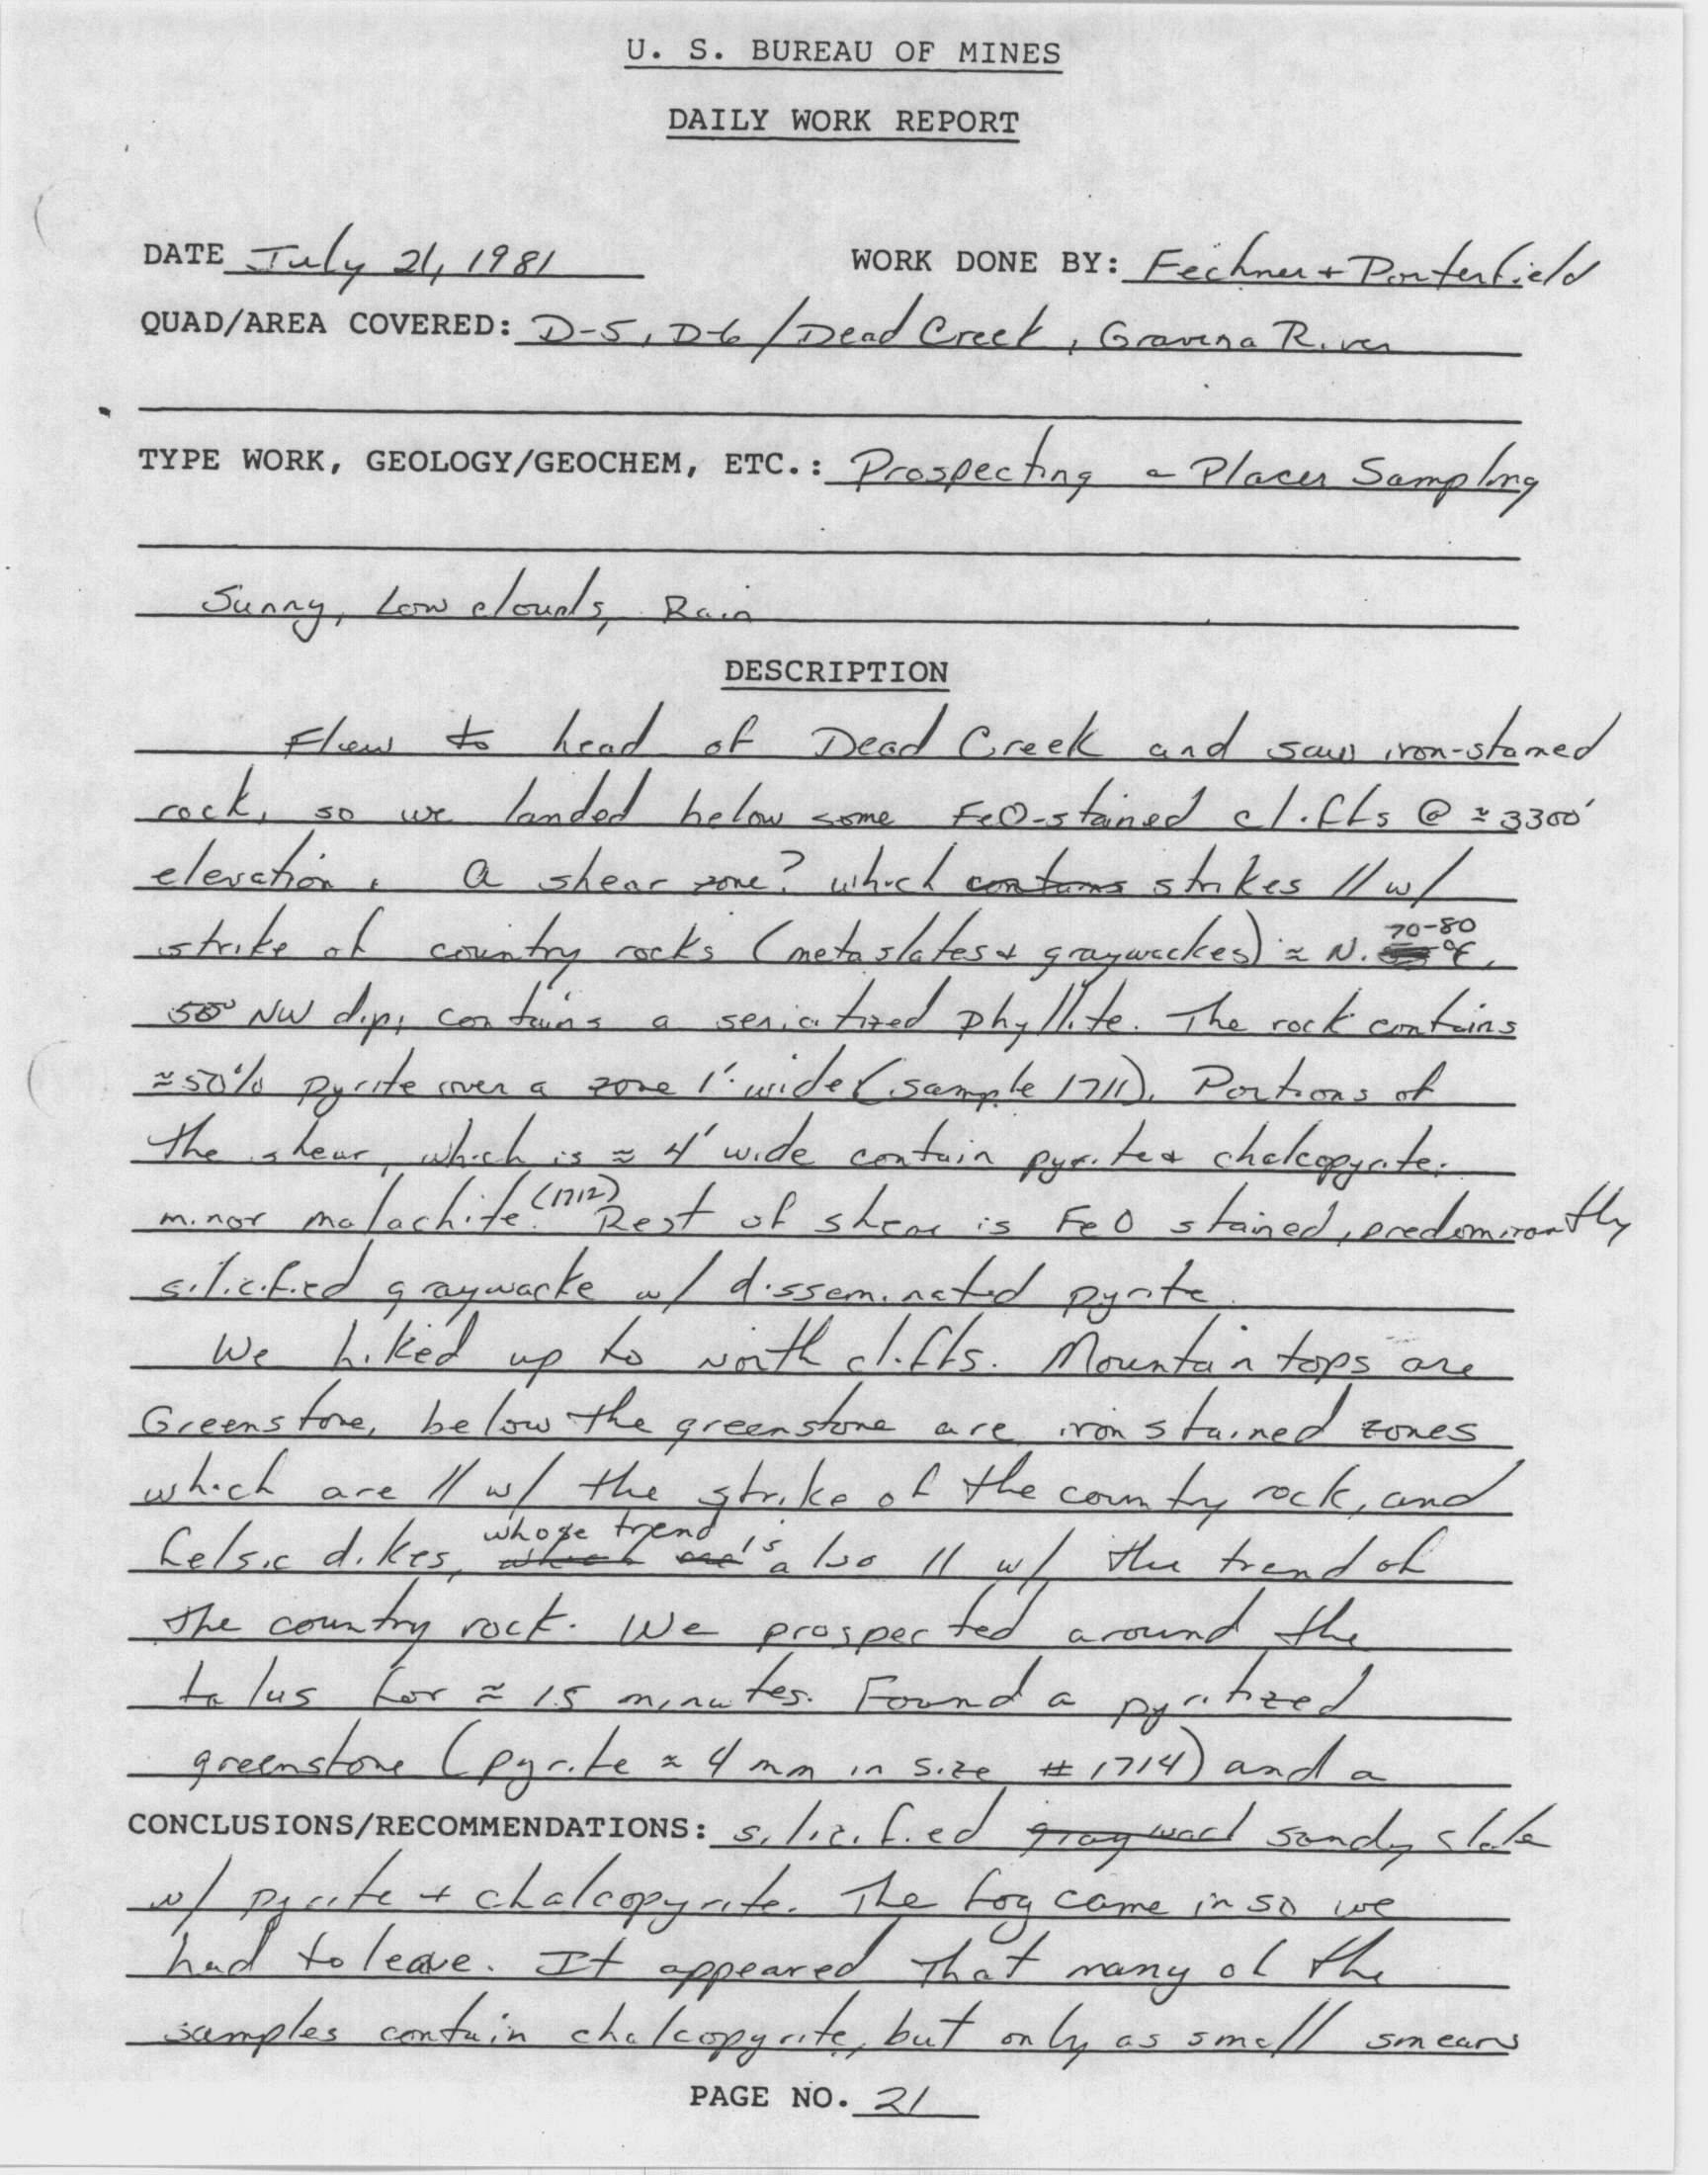 U. S. BUREAU OF MINES
DAILY WORK REPORT
DATE July 21, 1981 WORK DONE BY: Fechner + Porterfield
QUAD/AREA COVERED: D-5, D-6 / Dead Creek, Gravina River
TYPE WORK, GEOLOGY/GEOCHEM, ETC.: Prospecting - Placer Sampling
Sunny, Low clouds, Rain
DESCRIPTION
Flew to head of Dead Creek and saw iron-stained
rock, so we landed below some FeO-stained cliffs @ ≈ 3300'
elevation. A shear zone? which contains strikes // w/
strike of country rocks (metaslates + graywackes) ≈ N. 70-80 °E,
50° NW dip; contains a sericitized phyllite. The rock contains
≈ 50% pyrite over a zone 1' wide (sample 1711). Portions of
the shear, which is ≈ 4' wide contain pyrite + chalcopyrite;
minor malachite. (1712) Rest of shear is FeO stained, predominantly
silicified graywacke w/ disseminated pyrite.
We hiked up to north cliffs. Mountain tops are
Greenstone, below the greenstone are iron stained zones
which are // w/ the strike of the country rock, and
felsic dikes, which are whose trend is also // w/ the trend of
the country rock. We prospected around the
talus for ≈ 15 minutes. Found a pyritized
greenstone (pyrite ≈ 4 mm in size # 1714) and a
CONCLUSIONS/RECOMMENDATIONS: silicified graywack sandy slate
w/ pyrite + chalcopyrite. The fog came in so we
had to leave. It appeared that many of the
samples contain chalcopyrite, but only as small smears
PAGE NO. 21